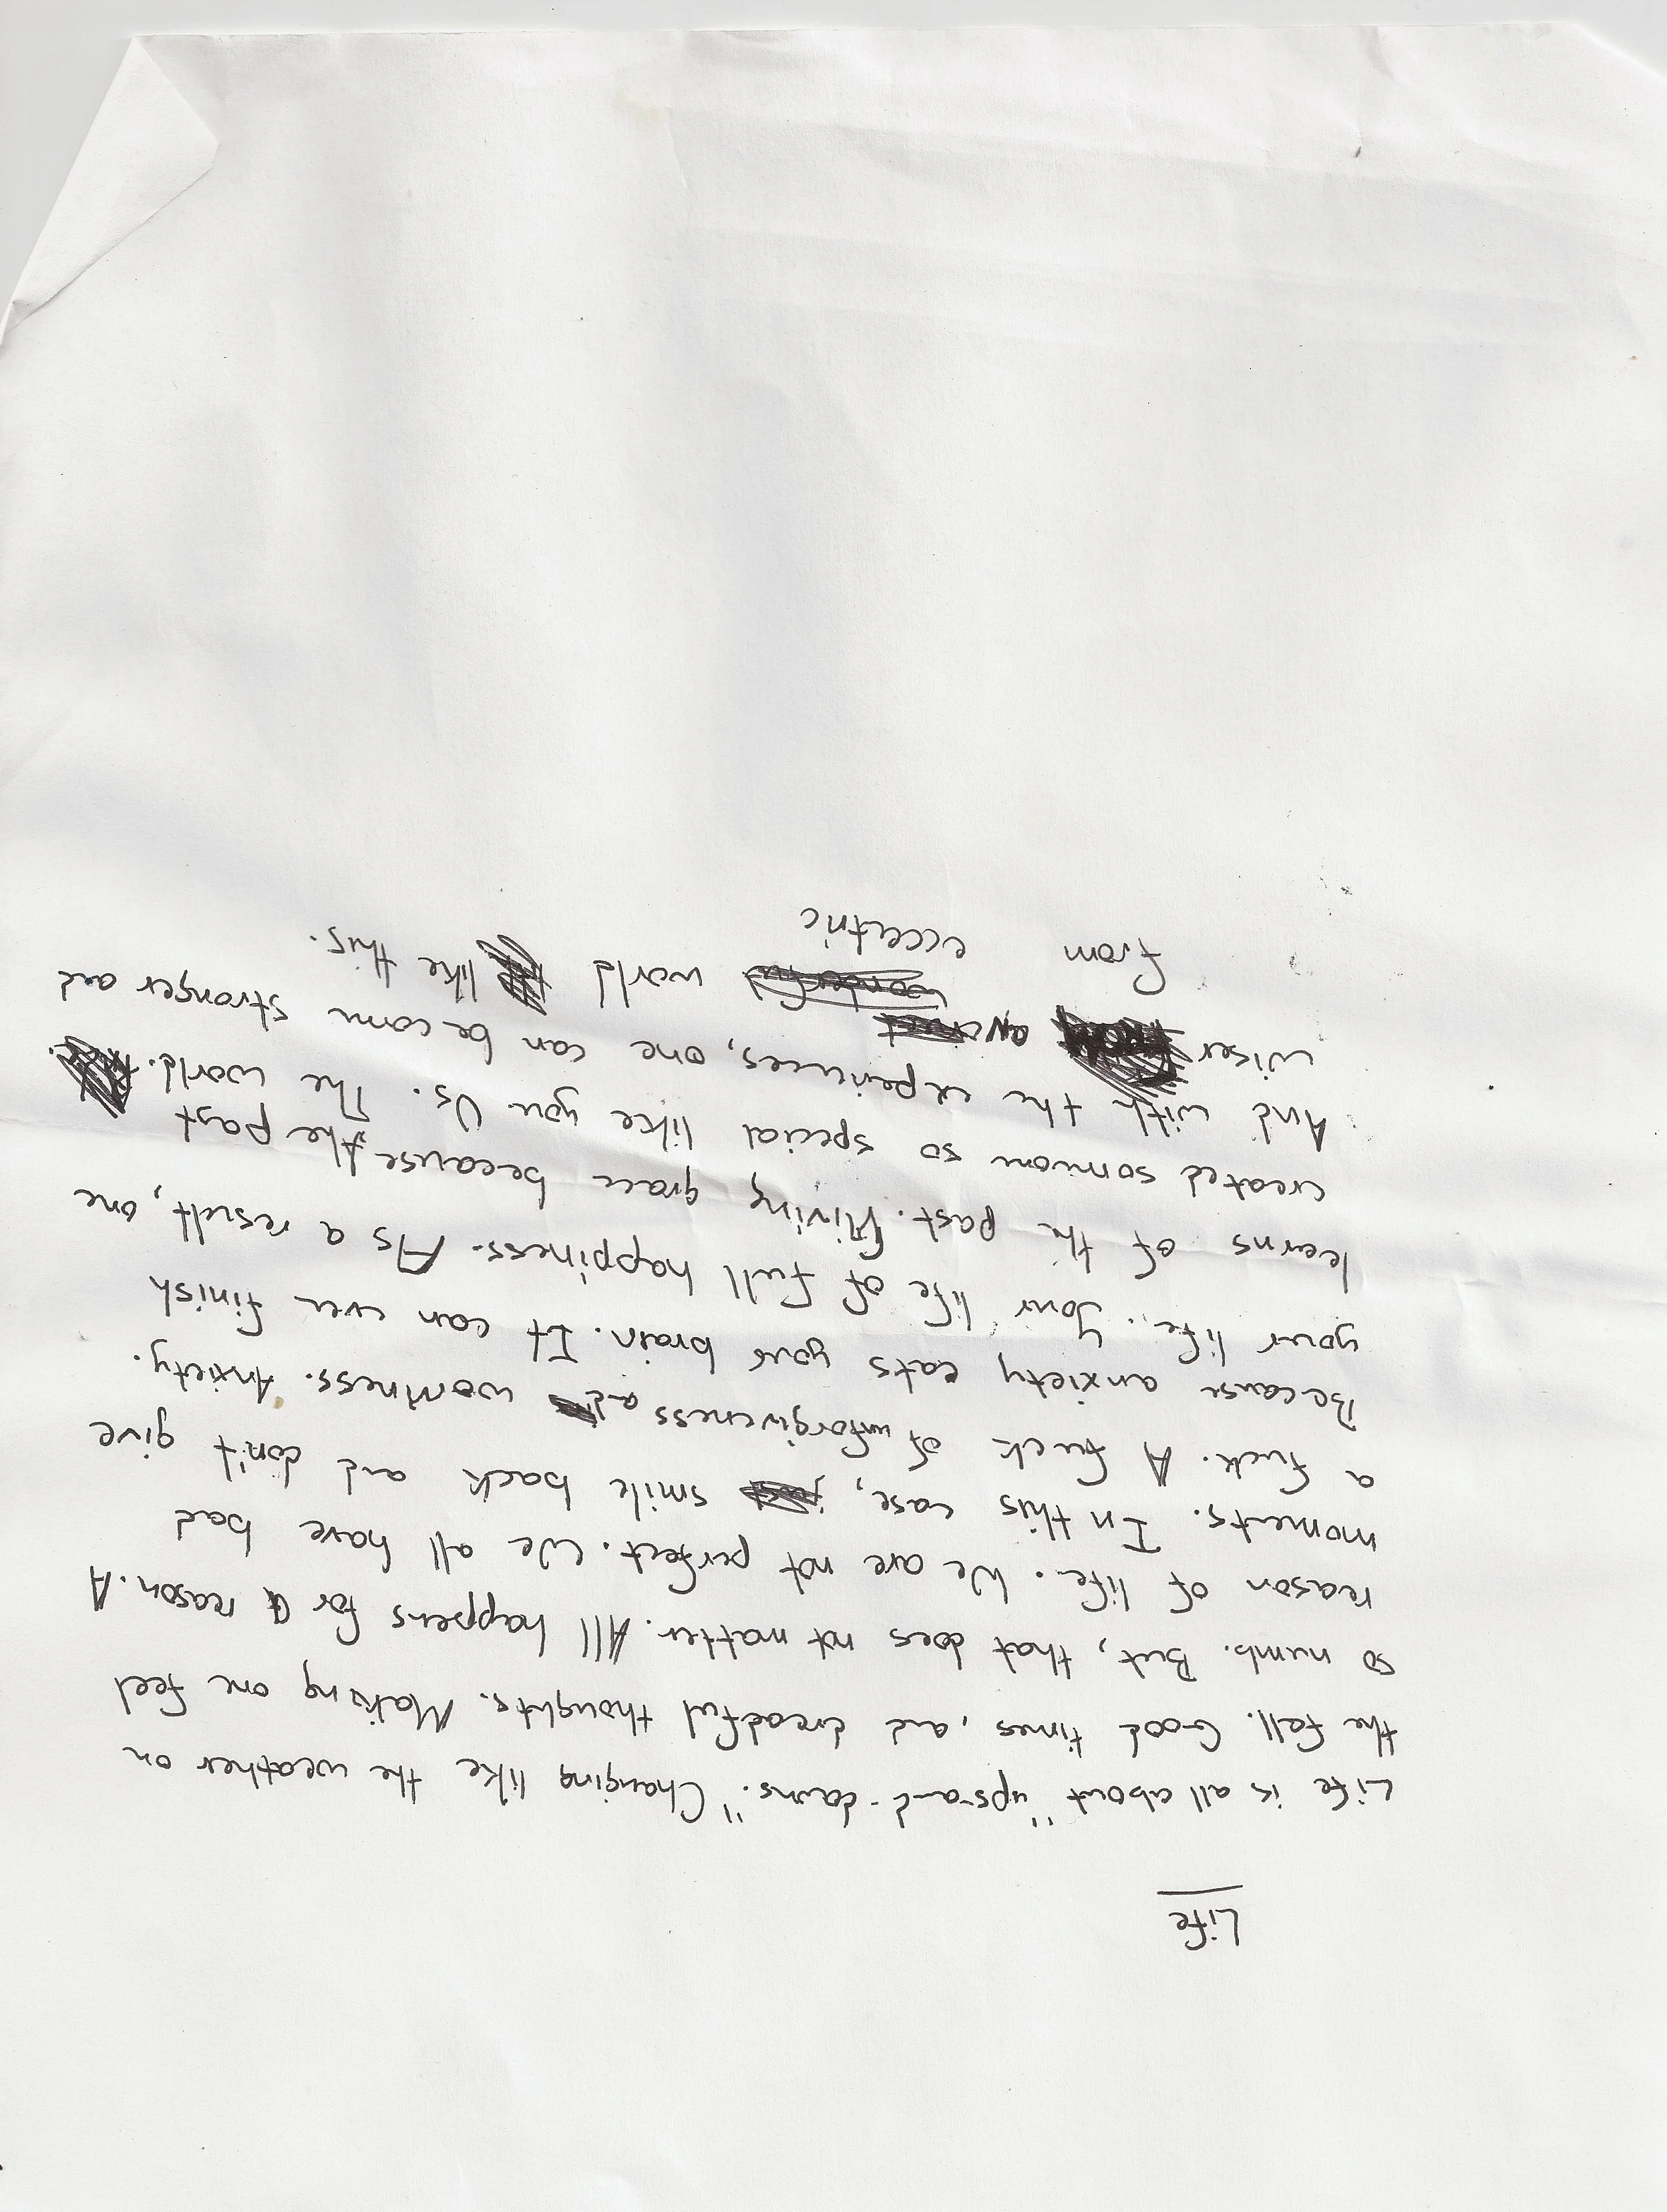 Life
Life is all about "ups-and-downs." Changing like the weather on
the fall. Good times, and dreadful thoughts. Making one feel
so numb. But, that does not matter. All happens for a reason. A
reason of life. We are not perfect. We all have bad
moments. In this case, just smile back and don't give
a fuck. A fuck of unforgiveness and worriness. Anxiety.
Because anxiety eats your brain. It can even finish
your life. Your life of full happiness. As a result, one
learns of the past. Giving grace because the past
created someone so special like you Us. The world.
And with the experiences, one can become stronger and
wiser an wonderful world like this.
from eccentric